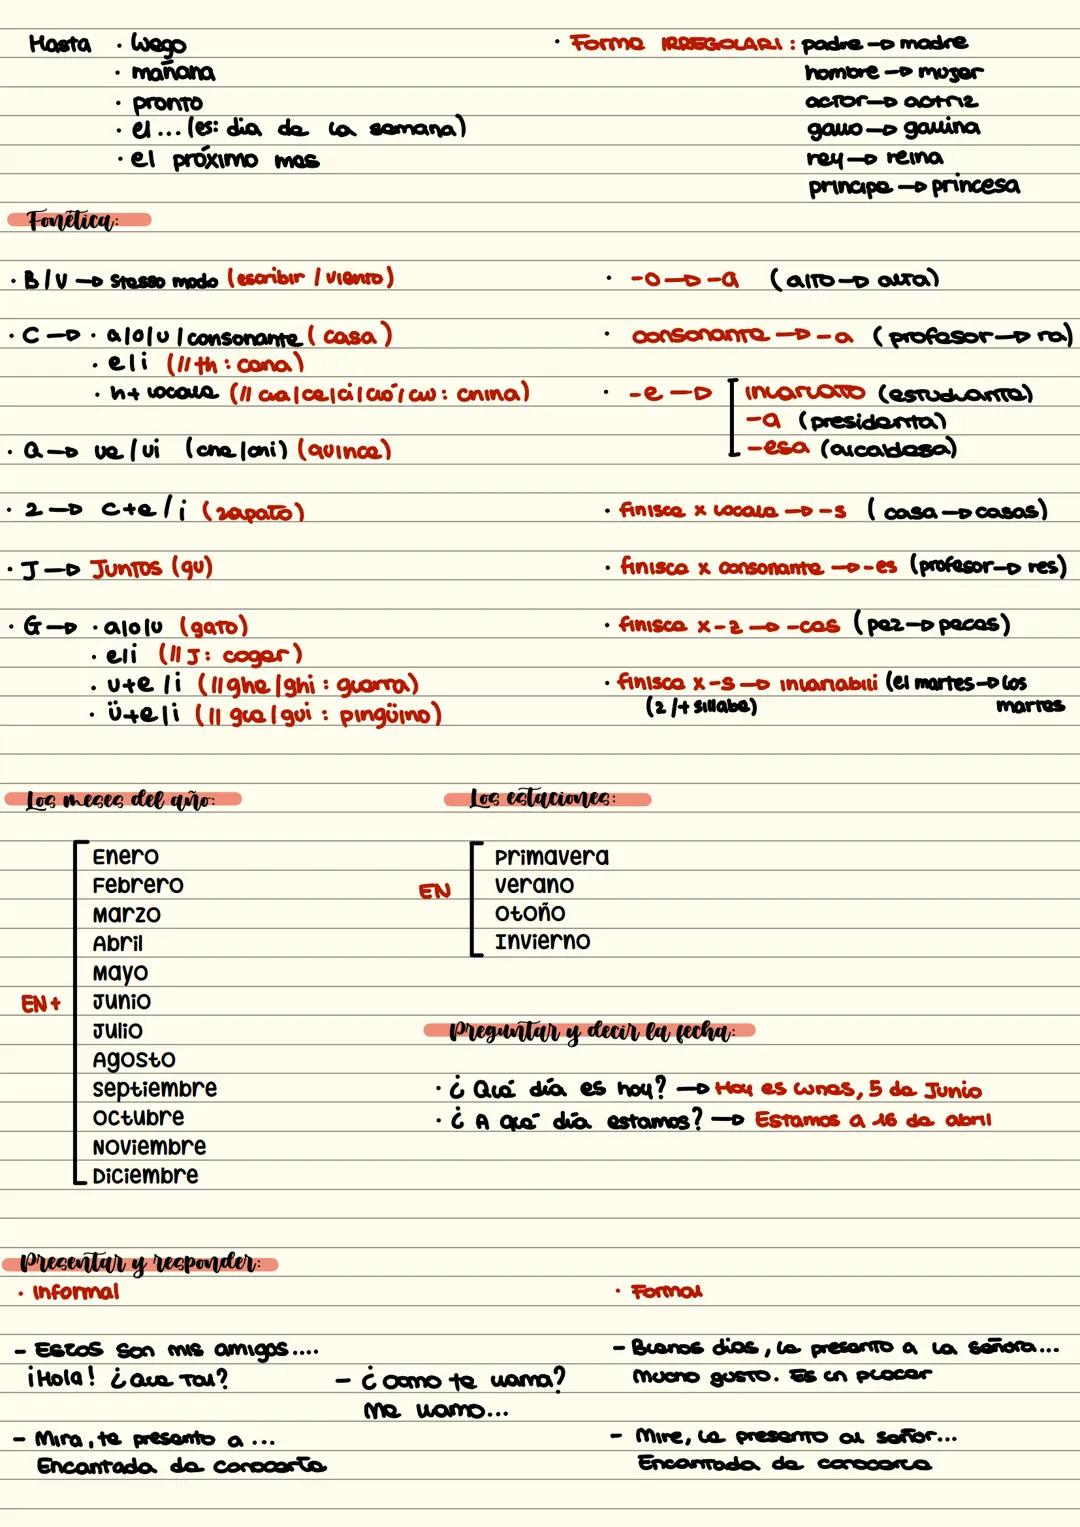 Hasta · luego
· mañana
· pronto
· el ... (es: dia de la semana)
· el próximo mes
· Forme IRREGOLARI : padre → madre
hombre → mujer
actor → actriz
gallo → gallina
rey → reina
principe → princesa
Fonética:
· B/V → stesso modo (escribir / viento)
· C → · a/o/u/consonante (casa)
· e/i (// th : cena)
· h + vocale (// cia/ce/ci/cio/ciu : china)
· Q → ue/ui (che/chi) (quince)
· Z → c+e/i (zapato)
· J → Juntos (qu)
· G → · a/o/u (gato)
· e/i (// J : coger)
· u+e/i (// ghe/ghi : guerra)
· ü+e/i (// gue/gui : pingüino)
· -o → -a (alto → alta)
· consonante → -a (profesor → ra)
· -e → invariato (estudiante)
-a (presidenta)
-esa (alcaldesa)
· finisce x vocale → -s (casa → casas)
· finisce x consonante → -es (profesor → res)
· finisce x -z → -ces (pez → peces)
· finisce x -s → invariabili (el martes → los
(2/+ sillabe) martes
Los meses del año:
EN +
Enero
Febrero
Marzo
Abril
Mayo
Junio
Julio
Agosto
Septiembre
Octubre
Noviembre
Diciembre
Los estaciones:
EN
Primavera
Verano
Otoño
Invierno
Preguntar y decir la fecha:
· ¿ Qué día es hoy? → Hoy es lunes, 5 de Junio
· ¿ A qué día estamos? → Estamos a 16 de abril
Presentar y responder:
· Informal
- Estos son mis amigos....
¡Hola! ¿Que tal?
- ¿ como te llama?
Me llamo...
- Mira, te presento a ...
Encantada de conocerte
· Formal
- Buenos dias, le presento a la señora...
Mucho gusto. Es un placer
- Mire, le presento al señor...
Encantada de conocerle